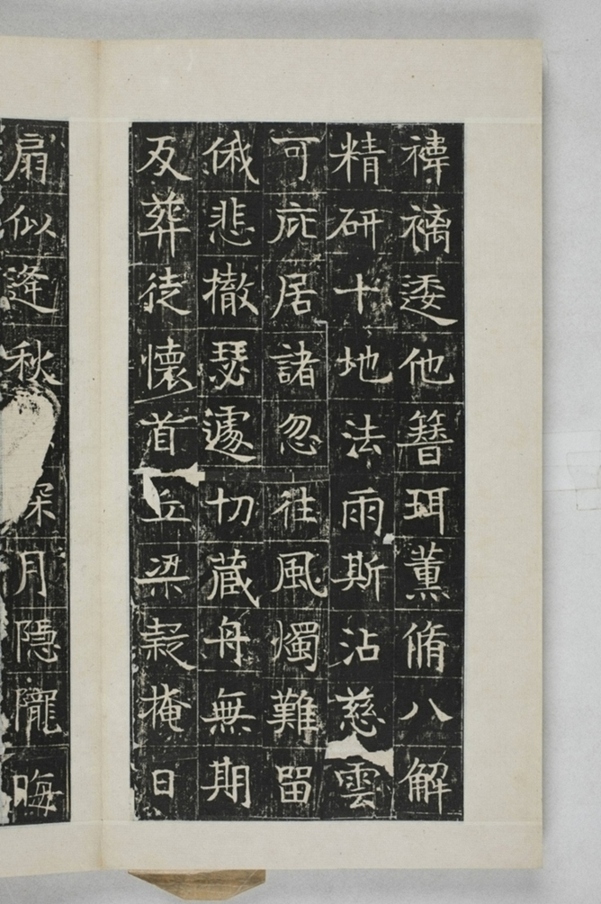 褘褵逶他簪珥薰脩八解
精研十地法雨斯沾慈雲
可庇居諸忽往風燭難留
俄悲撤瑟遽切藏舟無期
反葬徒懷首丘梁掩日
扇似逢秋深月隱隴晦